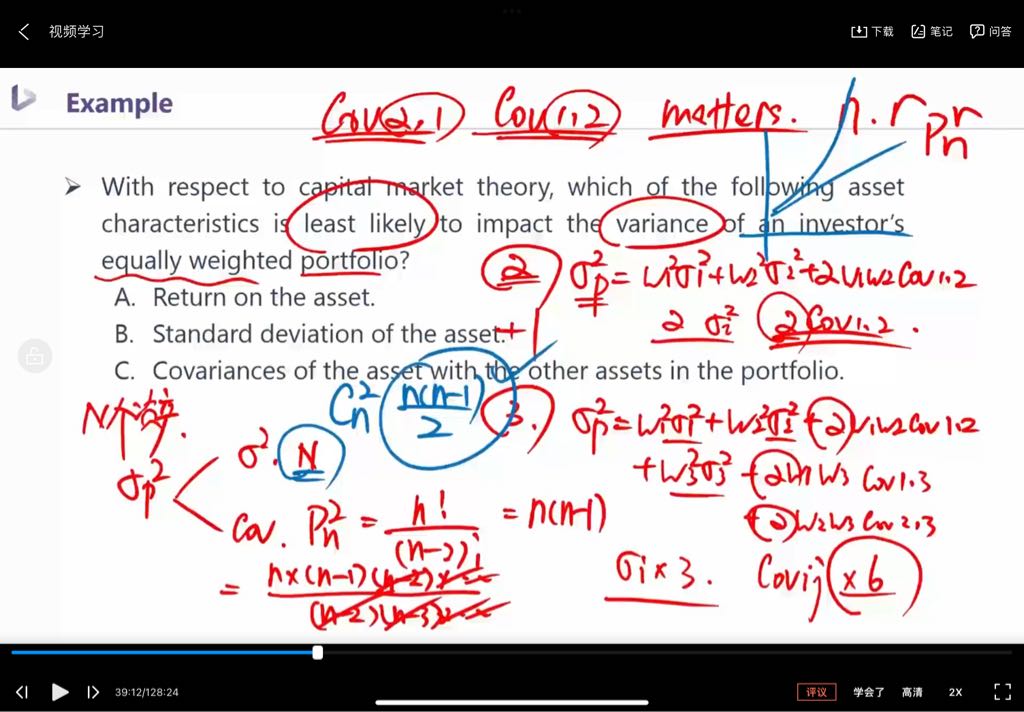 视频学习
下载 笔记 问答
Example
Cov2,1 Cov1,2 matters. n.r
Pnr
With respect to capital market theory, which of the following asset
characteristics is least likely to impact the variance of an investor's
equally weighted portfolio?
② σp²= w1²σ1²+w2²σ2²+2w1w2Cov1.2
A. Return on the asset.
2 σi² 2Cov1.2.
B. Standard deviation of the asset.
+1
C. Covariances of the asset with the other assets in the portfolio.
Cn² n(n-1)/2
N个资产.
3. σp²=w1²σ1²+w2²σ2²+2w1w2Cov1.2
+w3²σ3²+2w1w3 Cov1.3
+2w2w3 Cov2,3
σp²
σ². N
Cov. Pn² = n!/(n-2)! = n(n-1)
= n×(n-1)(n-2)×.../(n-2)(n-3)×...
σi×3. Covij×6
39:12/128:24
评议 学会了 高清 2X